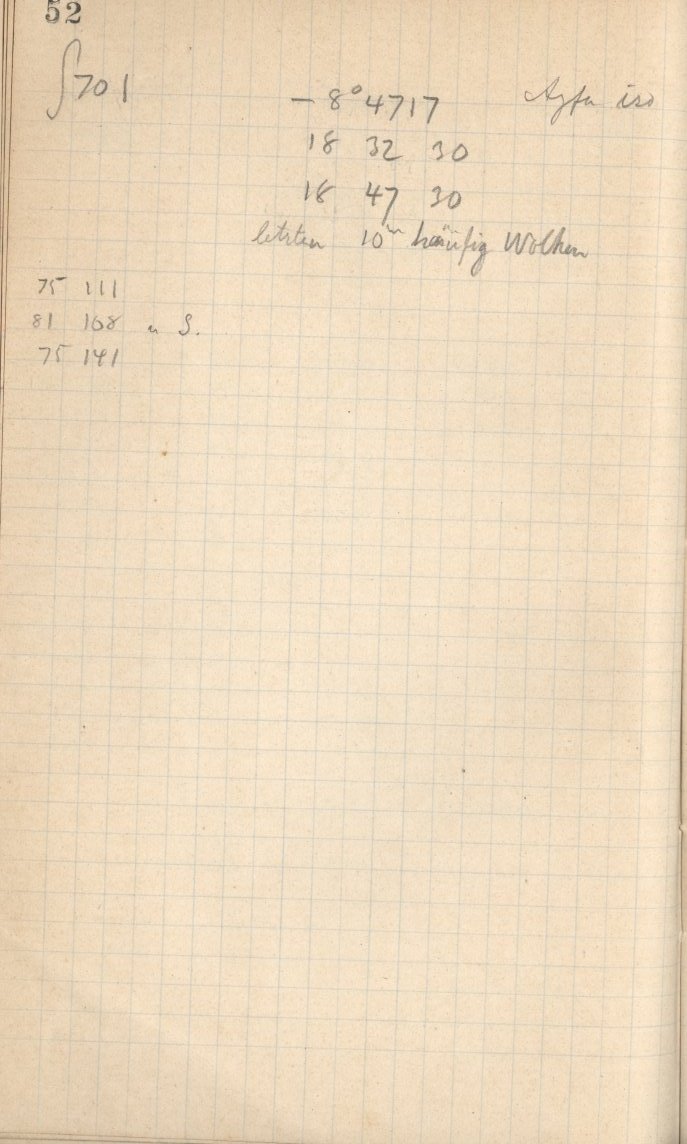 52
∫701 -8°4717 Agfa iso
18 32 30
18 47 30
letzten 10ᵐ häufig Wolken
75 111
81 168 u S.
75 141